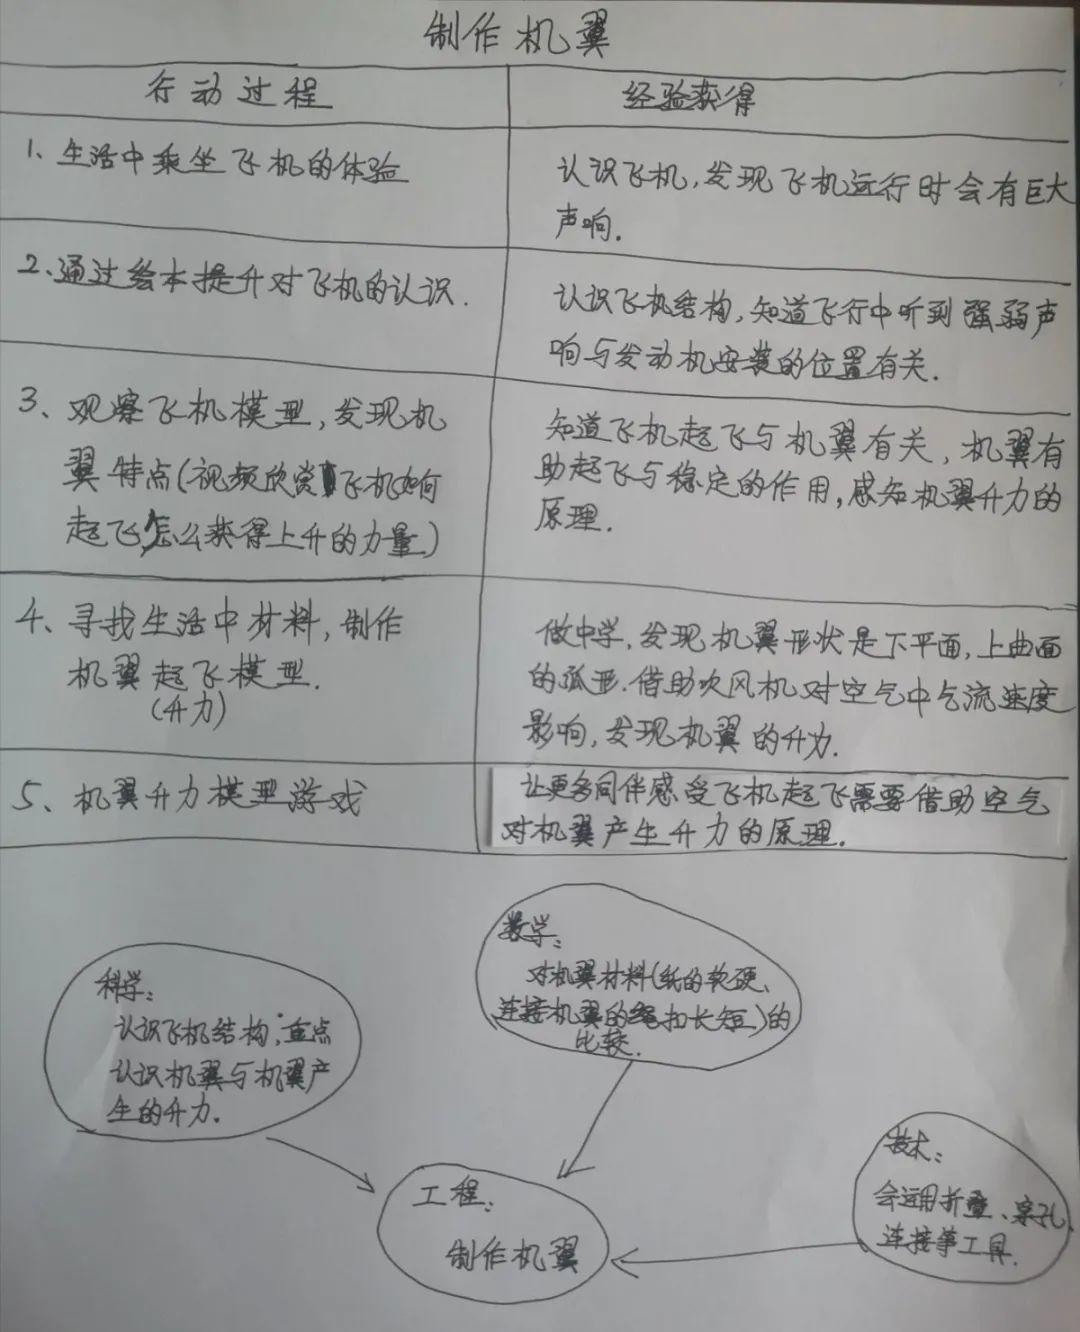 制作机翼
行动过程
经验获得
1、生活中乘坐飞机的体验
认识飞机,发现飞机运行时会有巨大
声响.
2、通过绘本提升对飞机的认识.
认识飞机结构,知道飞行中听到强弱声
响与发动机安装的位置有关.
3、观察飞机模型,发现机
翼特点(视频欣赏飞机如何
起飞,怎么获得上升的力量)
知道飞机起飞与机翼有关,机翼有
助起飞与稳定的作用,感知机翼升力的
原理.
4、寻找生活中材料,制作
机翼起飞模型.
(升力)
做中学,发现机翼形状是下平面,上曲面
的弧形.借助吹风机对空气中气流速度
影响,发现机翼的升力.
5、机翼升力模型游戏
让更多同伴感受飞机起飞需要借助空气
对机翼产生升力的原理.
数学:
对机翼材料(纸的软硬、
连接机翼的绳扣长短)的
比较.
科学:
认识飞机结构,重点
认识机翼与机翼产
生的升力.
技术:
会运用折叠、穿孔、
连接等工具.
工程:
制作机翼